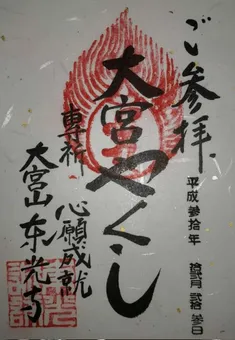 ご参拝
平成参拾年 拾弐月 弐拾参日
大宮やくし
専祈 心願成就
大宮山 东光寺